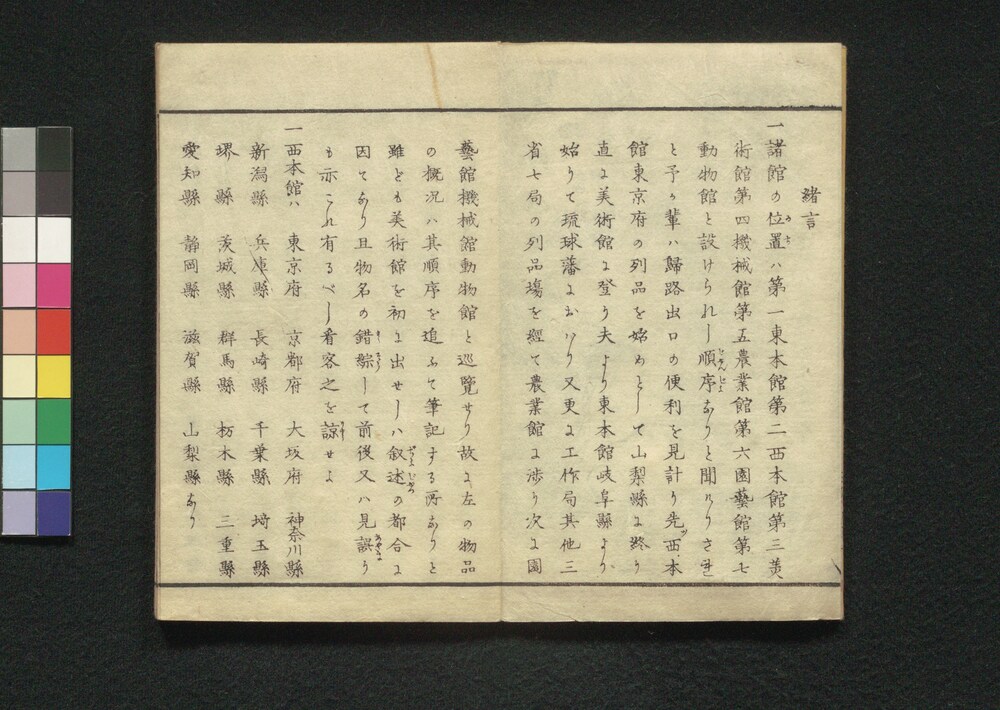 緒言
一諸館の位置ハ第一東本館第二西本館第三美
術館第四機械館第五農業館第六園藝館第七
動物館と設けられし順序なりと聞けりされ
と予が輩ハ歸路出口の便利を見計り先ッ西本
館東京府の列品を始めとして山梨縣に終り
直に美術館に登り夫より東本館岐阜縣より
始りて琉球藩におハり又更に工作局其他三
省七局の列品塲を經て農業館に渉り次に園
藝館機械館動物館と巡覽せり故に左の物品
の概況ハ其順序を追ふて筆記する所なりと
雖とも美術館を初に出せしハ叙述の都合に
因てなり且物名の錯綜して前後又ハ見誤り
も亦これ有るべし看客之を諒せよ
一西本館ハ 東京府 京都府 大坂府 神奈川縣
新潟縣 兵庫縣 長崎縣 千葉縣 埼玉縣
堺縣 茨城縣 群馬縣 栃木縣 三重縣
愛知縣 静岡縣 滋賀縣 山梨縣なり